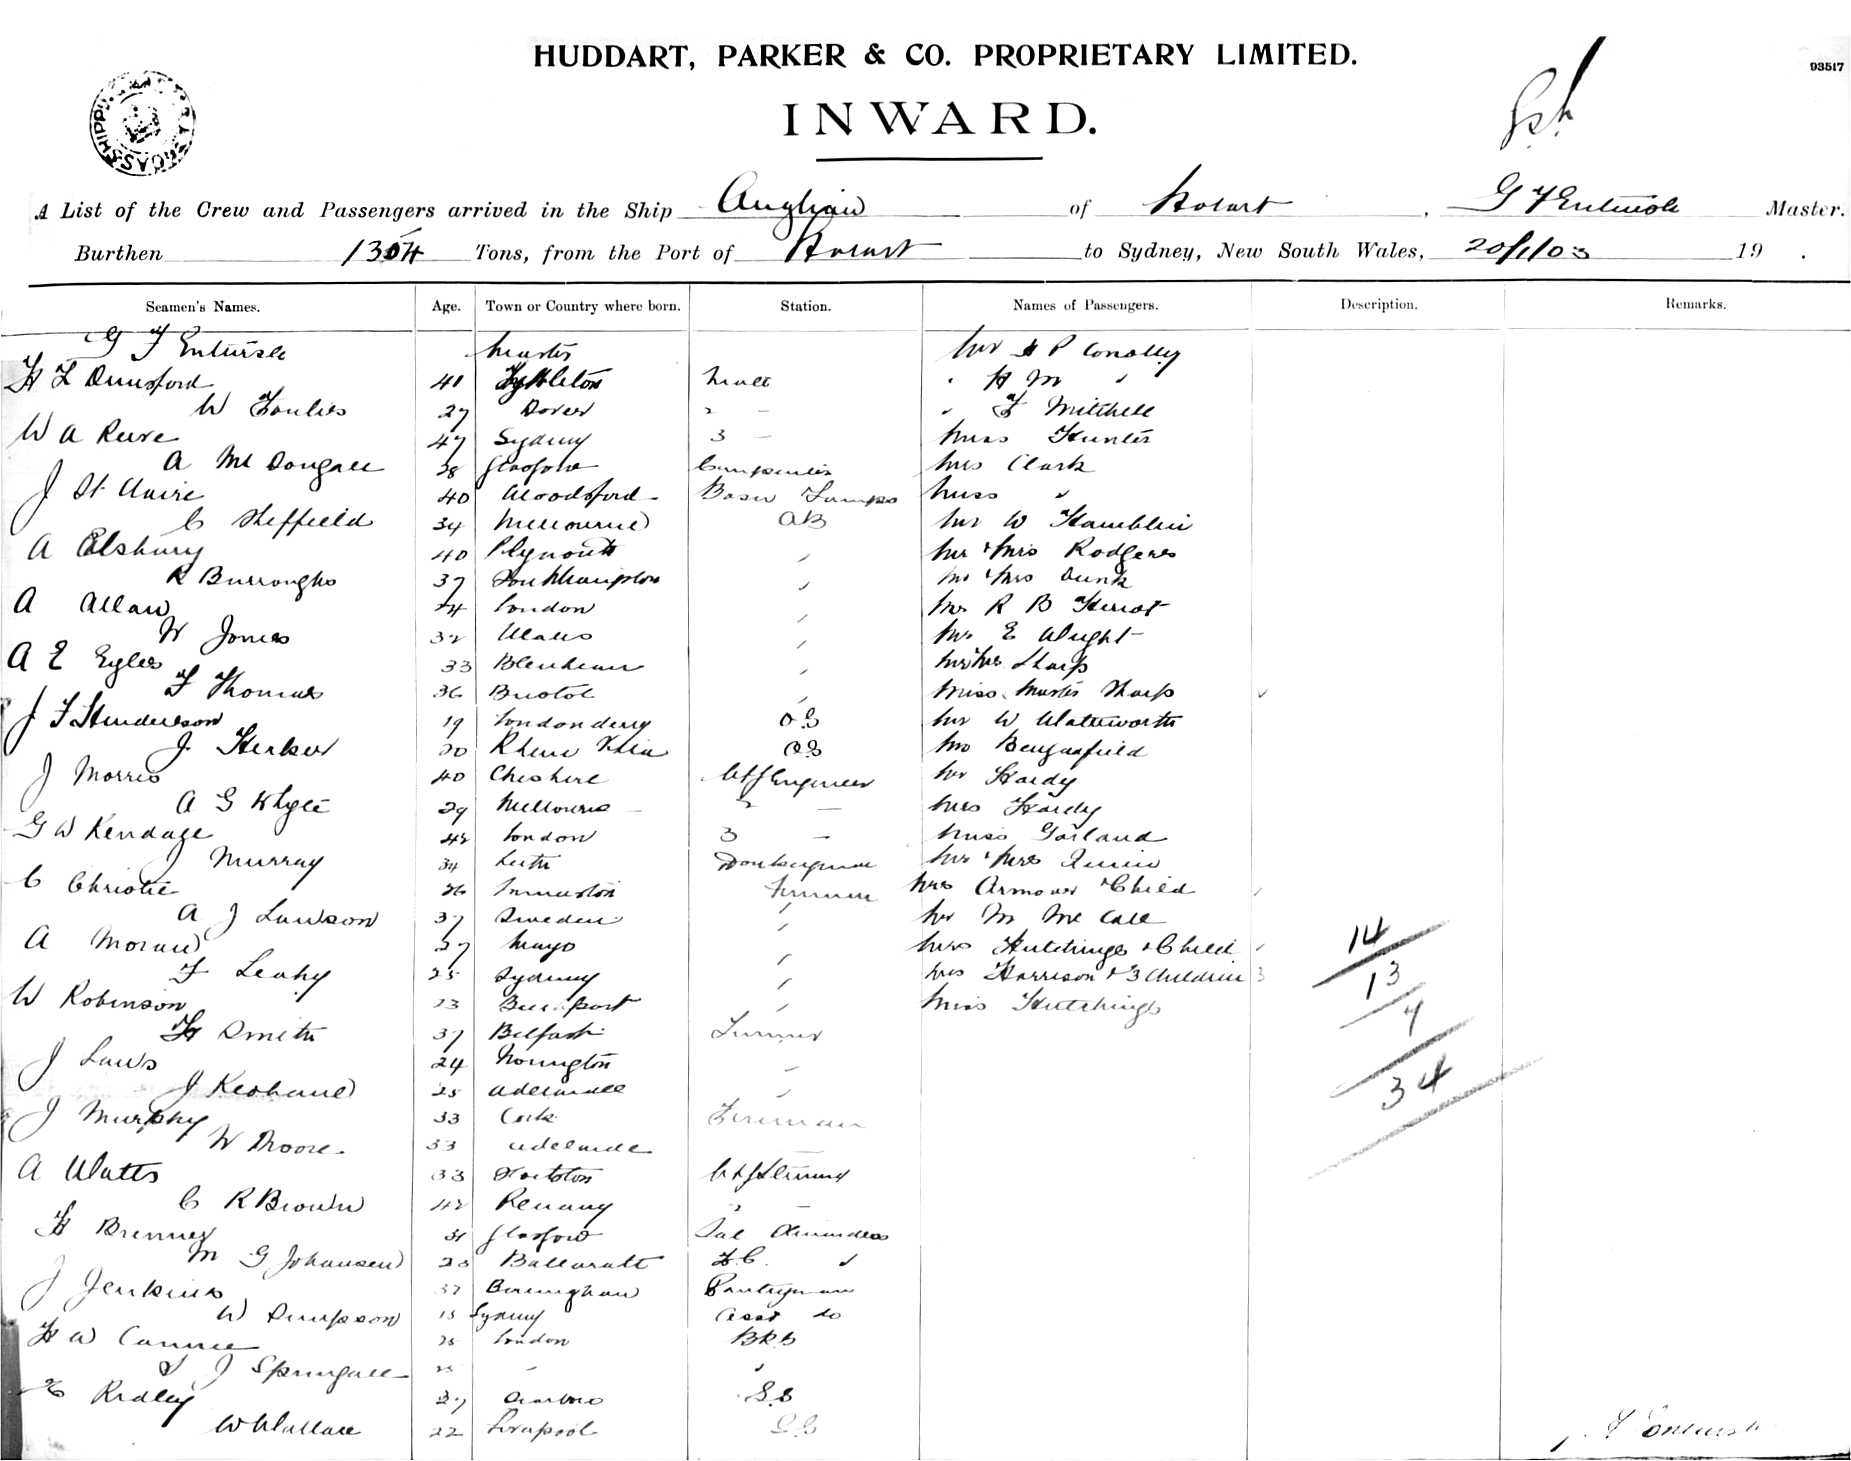 HUDDART, PARKER & CO. PROPRIETARY LIMITED.
93517
INWARD.
A List of the Crew and Passengers arrived in the Ship Anglian of Hobart, G F Entwisle Master.
Burthen 1304 Tons, from the Port of Hobart to Sydney, New South Wales, 20/1/03 19 .
Seamen's Names. Age. Town or Country where born. Station. Names of Passengers. Description. Remarks.
G F Entwisle Master Mr H P Conolly
H L Dunsford 41 Lyttleton Mate " H M "
W Foulies 27 Dover 2 - " F Mitchell
W A Reeve 47 Sydney 3 - Miss Hunter
A McDougall 38 Glasgow Carpenter Mrs Clark
J St Claire 40 Woodsford Bosun Lamps Miss "
C Sheffield 34 Melbourne AB Mr W Hamblin
A Elsbury 40 Plymouth " Mr & Mrs Rodgers
R Burroughs 37 Southampton " Mr & Mrs Dunk
A Allan 24 London " Mr R B Heriot
W Jones 32 Wales " Mr E Wright
A E Eyles 33 Blenheim " Mr & Mrs Sharp
F Thomas 36 Bristol " Miss Master Sharp
J F Henderson 19 Londonderry OS Mr W Watsworth
J Herker 20 OS Mr Bengafield
J Morris 40 Cheshire Chf Engineer Mr Hardy
A G Whyte 29 Melbourne 2 - Mrs Hardy
G W Kendage 42 London 3 - Miss Garland
J Murray 34 Leith Donkeyman Mr & Mrs Quinn
C Christie 26 Fireman Mrs Armour & Child
A J Lawson 37 Sweden " Mr M McCall
A Moran 37 Mayo " Mrs Hutchings & Child
14
F Leahy 25 Sydney " Mrs Harrison & 3 Children 3
13
W Robinson 23 " Miss Hutchings
7
H Smith 37 Belfast Trimmer
J Laws 24 -
34
J Keohane 25 Adelaide "
J Murphy 33 Cork Fireman
W Moore 33 Adelaide -
A Watts 33 Chf Steward
C R Brown 42 Penang 2 -
H Brenney 31 Glasgow Sal Attendess
M G Johansen 23 Ballaratt F.C. "
J Jenkins 32 Birmingham Pantryman
W Simpson 18 Sydney Asst do
H W Cannee 28 London BRS
S J Springall 25 - "
C Ridley 27 S.S
W Wallace 22 Liverpool S.S
G F Entwisle